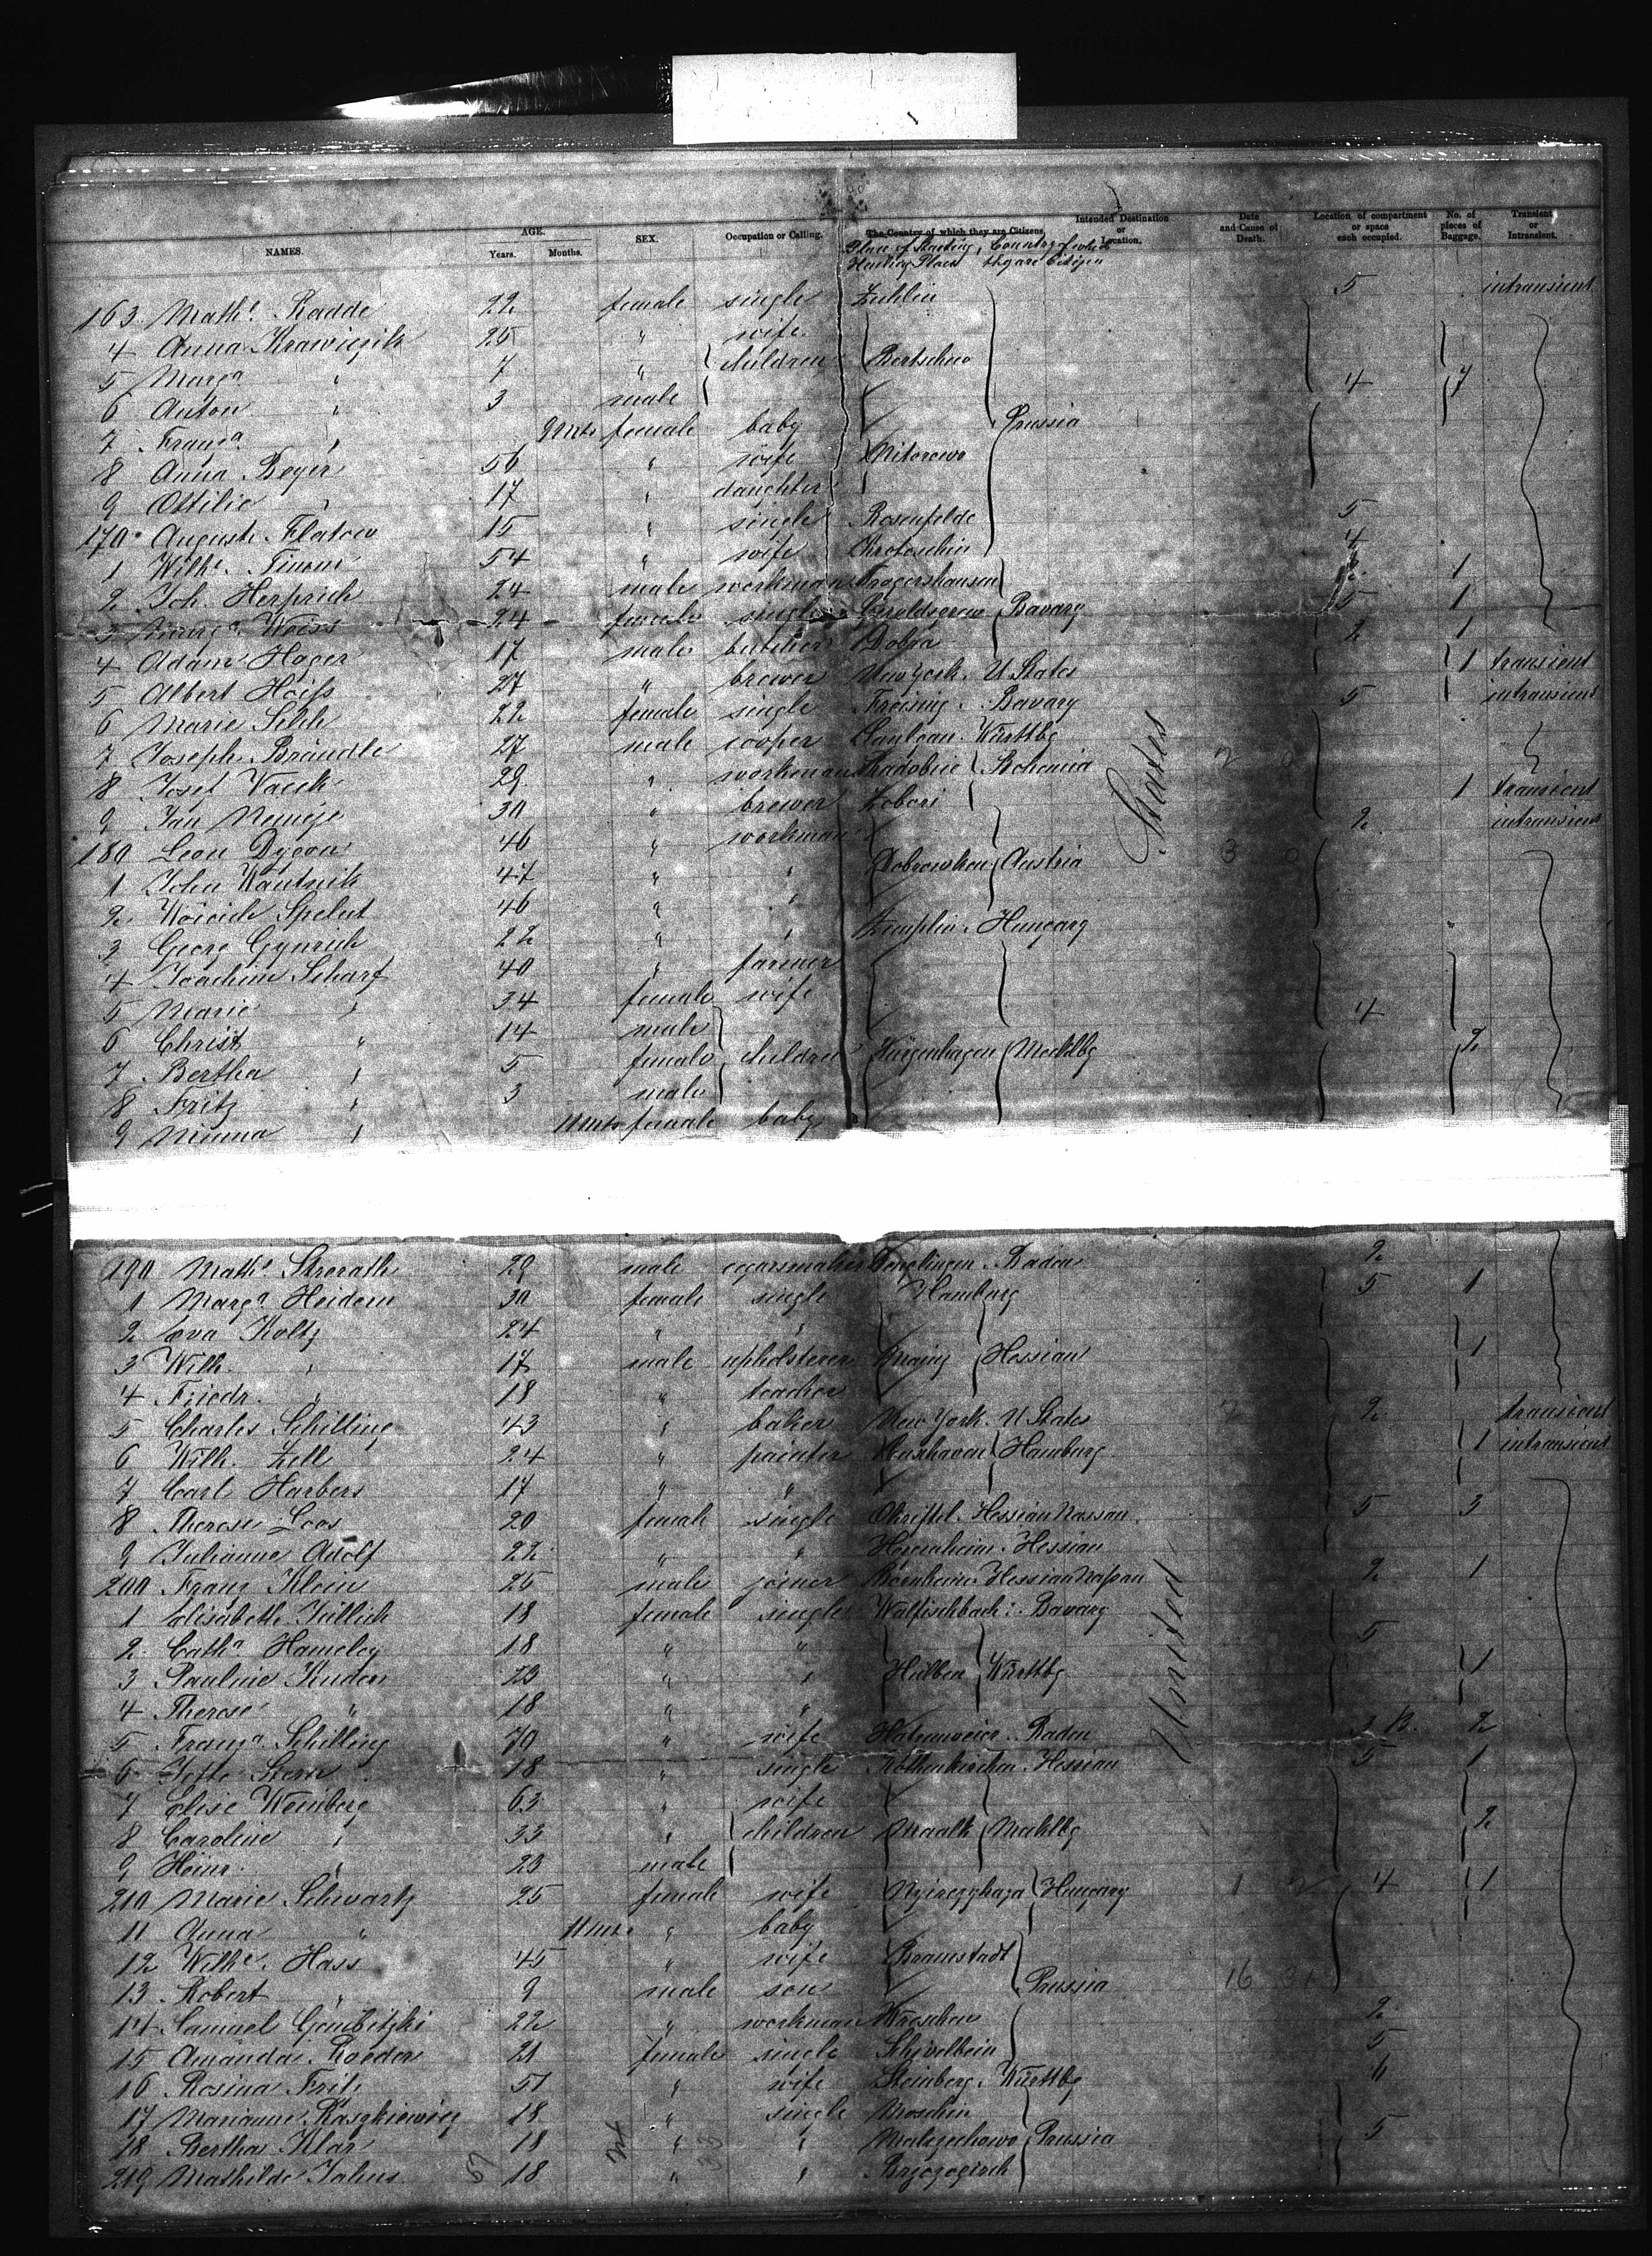 NAMES. AGE. Years. Months. SEX. Occupation or Calling. The Country of which they are Citizens. Intended Destination or Location. Date and Cause of Death. Location of compartment or space each occupied. No. of pieces of Baggage. Transient or Intransient.
Place of Starting, Country of which
they are Citizen
163 Mathe. Radde 22 female single Zuhlin 5 intransient
4 Anna Krawiczik 25 " wife
5 Marga " 7 " children Bartschewo
6 Anton " 3 male 4 7
7 Franza " 9 Mts female baby Prussia
8 Anna Beyer 56 " wife Nitorowo
9 Ottilie " 17 " daughter
170 Auguste Flatow 15 " single Rosenfelde 5
1 Wilhe. Timm 54 " wife Chrotoschin 4
2 Joh. Herfrich 24 male workman Trogershausen 2 1
3 Marga. Weiss 24 female single Geroldsgrün Bavary 5 1
4 Adam Hager 17 male butcher Dobra 2 1
5 Albert Hoifs 27 " brewer New York. U States 1 transient
6 Marie Selch 22 female single Freising. Bavary 5 intransient
7 Joseph Brändle 27 male cooper Württbg
8 Josef Vacek 29 " workman Hradobric Bohemia
9 Jan Nemeje 30 " brewer Zobori 1 transient
180 Leon Dygon 46 " workman 2 intransient
1 John Wantnik 47 " " Dobrowskou Austria
2 Woicich Spelut 46 " "
3 Georg Gynrich 22 " " Zemplin. Hungary
4 Joachim Scharf 40 " farmer
5 Marie " 34 female wife
6 Christ " 14 male 4
7 Bertha " 5 female children Mecklbg 2
8 Fritz " 3 male
9 Minna " 11 Mts female baby
United States
190 Mathe. Strerath 29 male cigarsmaker Baden 2
1 Marga. Heidern 30 female single Hamburg 5 1
2 Eva Koltz 24 " "
3 Wilh. " 17 male upholsterer Mainz Hessian 1
4 Friedr. " 18 " teacher
5 Charles Schilling 43 " baker New York. U States 2 transient
6 Wilh. Zell 24 " painter Cuxhaven Hamburg 1 intransient
7 Carl Harbers 17 " "
8 Therese Loos 20 female single Okriftel. Hessian Nassau 5 3
9 Julianne Adolf 22 " " Hessian
200 Franz Klein 25 male joiner Bornheim. Hessian Nassau 2 1
1 Elisabeth Jüllich 18 female single Walfischbach. Bavary
2 Catha. Hameley 18 " " 5
3 Pauline Kuder 23 " " Hülben Württbg 1
4 Therese " 18 " "
5 Franza. Schilling 79 " wife Baden 2
6 Jette Stern 18 " single Rothenkirchen. Hessian 5 1
7 Elise Weinberg 63 " wife
8 Caroline " 33 " children Maalk Mecklbg 2
9 Heinr. " 23 male
210 Marie Schwartz 25 female wife Nyiregyhaza Hungary 4 1
11 Anna " 11 Mts " baby
12 Wilhe. Hass 45 " wife Bramstadt
13 Robert " 9 male son Prussia
14 Samuel Gembitzki 22 " workman Wreschen 2
15 Amanda Roeder 21 female single Schivelbein 5
16 Rosina Fritz 51 " wife Steinberg. Württbg 6
17 Marianne Raszkiewicz 18 " single Moschin
18 Bertha Klar 18 " " Malzechowo Prussia 5
219 Mathilde Jahns 18 " "